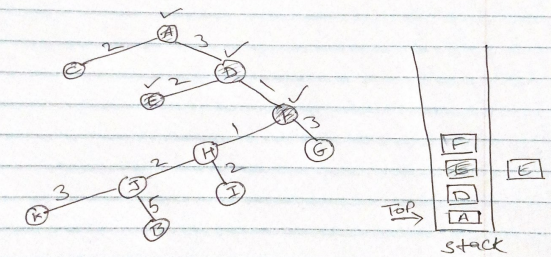 A
2 3
C D
2 1
E F
1 3
H G
2 2
J I
3 5
K B
F
E E
D
TOP A
stack